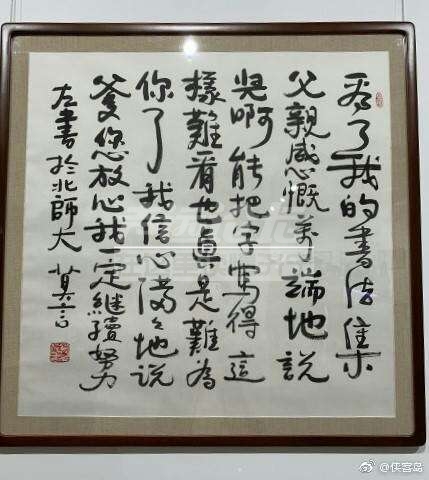 看了我的書法集
父親感慨萬端地說
兒啊能把字寫得這
樣難看也真是難為
你了我信心滿々地說
爹您放心我一定繼續努力
左書於北師大 莫言
@侠客岛